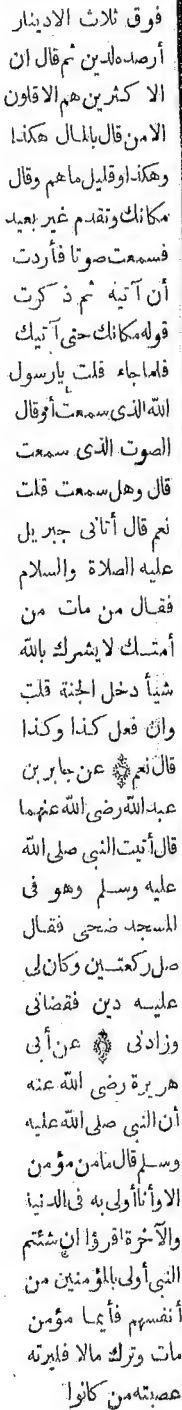 فوق ثلاث الادينار
أرصده لدين ثم قال ان
الا كثرين هم الاقلون
الامن قال بالمال هكذا
وهكذا وقليل ماهم وقال
مكانك وتقدم غير بعيد
فسمعت صوتا فأردت
أن آتيه ثم ذكرت
قوله مكانك حتى آتيك
فلما جاء قلت يارسول
الله الذى سمعت أوقال
الصوت الذى سمعت
قال وهل سمعت قلت
نعم قال أتانى جبريل
عليه الصلاة والسلام
فقال من مات من
أمتك لايشرك بالله
شيأ دخل الجنة قلت
وان فعل كذا وكذا
قال نعم ۞ عن جابر بن
عبد الله رضى الله عنهما
قال أتيت النبى صلى الله
عليه وسلم وهو فى
المسجد ضحى فقال
صل ركعتين وكان لى
عليه دين فقضانى
وزادنى ۞ عن أبى
هريرة رضى الله عنه
أن النبى صلى الله عليه
وسلم قال مامن مؤمن
الا وأنا أولى به فى الدنيا
والآخرة اقرؤا ان شئتم
النبى أولى بالمؤمنين من
أنفسهم فأيما مؤمن
مات وترك مالا فليرثه
عصبته من كانوا